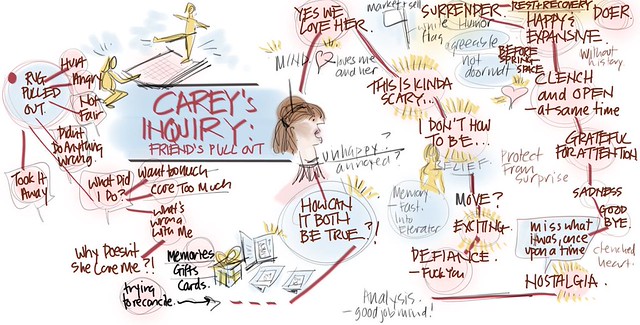 RUG
PULLED
OUT.
HURT
ANGRY
Not
Fair
Didn't
Do Anything
Wrong.
Took It
Away
What Did
I Do?
Want too much
Care Too Much
What's
wrong
with Me
Why Doesn't
She Love Me?!
CAREY'S
INQUIRY:
FRIEND'S PULL OUT
Memories
Gifts
Cards.
trying
to reconcile.
YES WE
LOVE HER.
MIND
loves me
and her
unhappy?
annoyed?
HOW CAN
IT BOTH
BE TRUE..?!
market + sell
white
flag
Humor
SURRENDER.
REST + RECOVERY
HAPPY &
EXPANSIVE.
DOER.
agreeable
not
doormat
BEFORE
SPRING
SPACE
Without
history
THIS IS KINDA
SCARY...
CLENCH
and OPEN
- at same time
I DON'T HOW
TO BE...
BELIEF.
GRATEFUL
FOR ATTENTION
Protect
From
surprise
Memory
- Fast.
Into
MOVE?
EXCITING.
SADNESS
GOOD
BYE.
miss what
it was, once
upon a time
clenched
heart.
DEFIANCE.
- Fuck You
NOSTALGIA.
Analysis.
- good job mind!